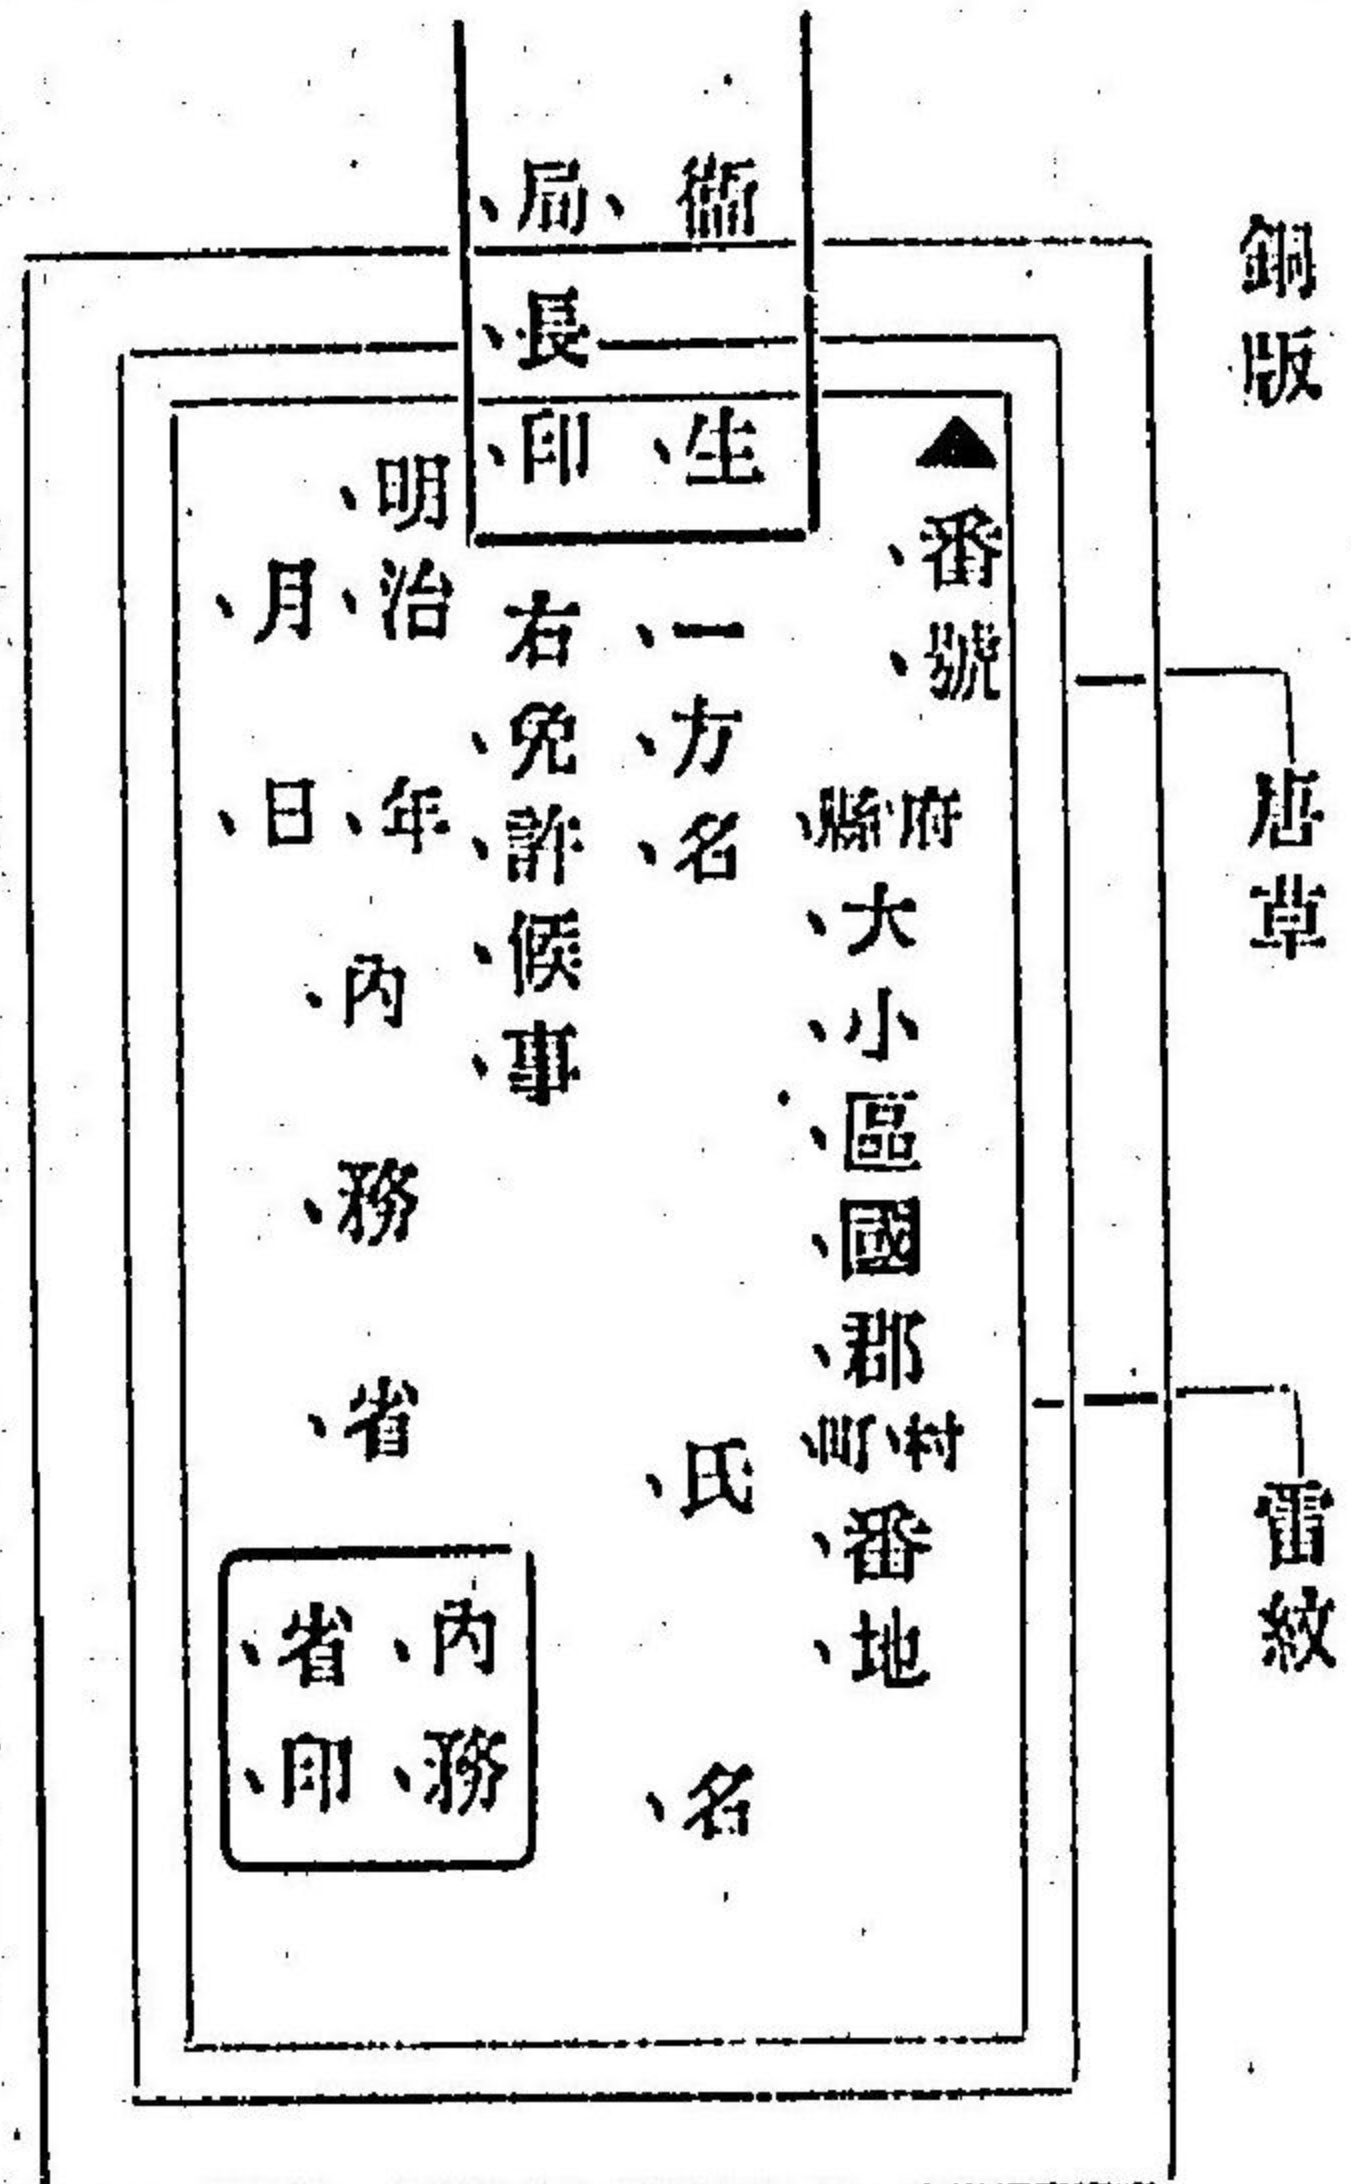 銅版
唐草
雷紋
衞、生、
局、長、印、
▲番、號、
府、縣、大、小、區、國、郡、村、町、番、地、
氏、名、
一、方、名、
右免、許、候、事、
明、治、年、
月、日、
內、務、省、
內、務、
省、印、